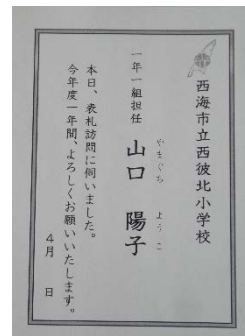 西海市立西彼北小学校
一年一組担任 山口 陽子
やまぐち ようこ
本日、表札訪問に伺いました。
今年度一年間、よろしくお願いいたします。
4月 日